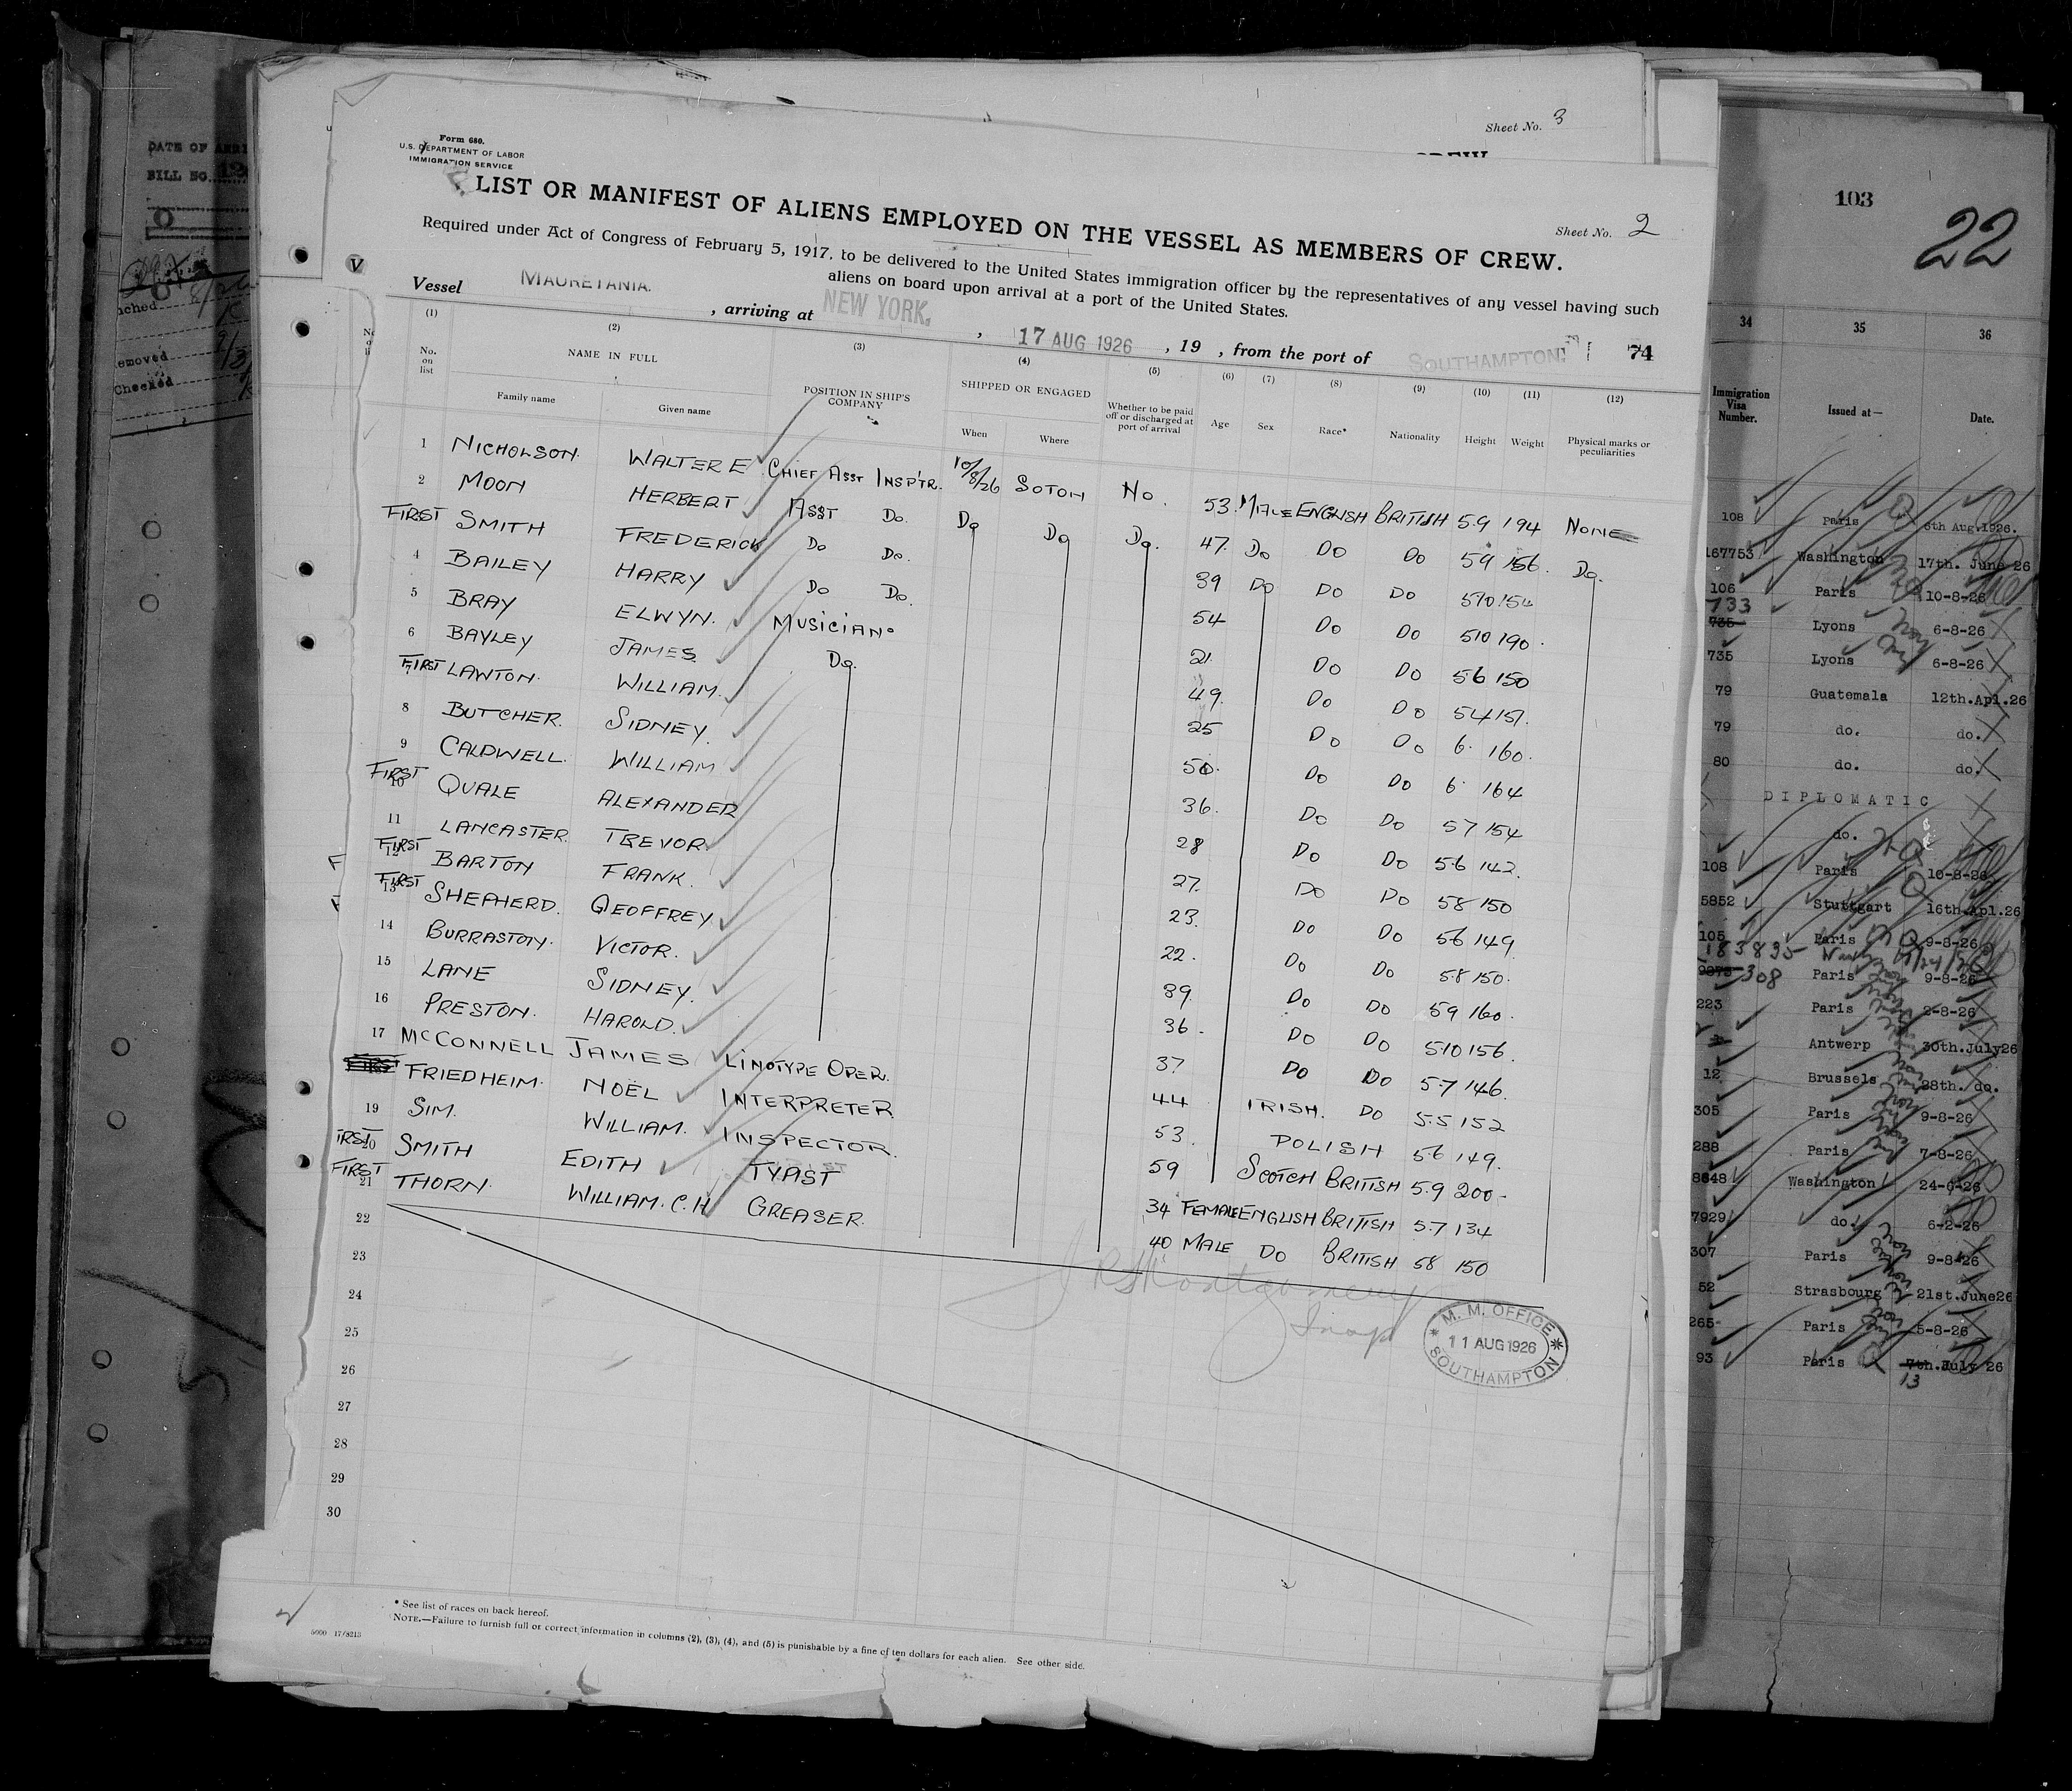 Sheet No. 3
Form 680.
U.S. DEPARTMENT OF LABOR
IMMIGRATION SERVICE
LIST OR MANIFEST OF ALIENS EMPLOYED ON THE VESSEL AS MEMBERS OF CREW.
Sheet No. 2
Required under Act of Congress of February 5, 1917, to be delivered to the United States immigration officer by the representatives of any vessel having such
aliens on board upon arrival at a port of the United States.
Vessel MAURETANIA. , arriving at NEW YORK. , 17 AUG 1926 , 19 , from the port of SOUTHAMPTON. 74
(1) (2) (3) (4) (5) (6) (7) (8) (9) (10) (11) (12)
No. on list NAME IN FULL POSITION IN SHIP'S COMPANY SHIPPED OR ENGAGED Whether to be paid off or discharged at port of arrival Age Sex Race* Nationality Height Weight Physical marks or peculiarities
Family name Given name When Where
1 NICHOLSON. WALTER E. CHIEF ASST INSP'TR. 10/8/26 SOTON NO. 53. MALE ENGLISH BRITISH 5.9 194 NONE
2 MOON HERBERT ASST DO. DO DO DO. 47. DO DO DO 59 156. DO.
FIRST SMITH FREDERICK DO DO. 39 DO DO DO 510 154
4 BAILEY HARRY DO DO. 54 DO DO 510 190.
5 BRAY ELWYN. MUSICIAN. 21. DO DO 56 150
6 BAYLEY JAMES. DO. 49. DO DO 54 151.
FIRST 7 LAWTON. WILLIAM. 25 DO DO 6. 160.
8 BUTCHER. SIDNEY. 50. DO DO 6. 164
9 CALDWELL. WILLIAM 36. DO DO 57 154
FIRST 10 QUALE ALEXANDER 28 DO DO 5.6 142.
11 LANCASTER. TREVOR. 27. DO DO 58 150
FIRST 12 BARTON FRANK. 23. DO DO 56 149
FIRST 13 SHEPHERD. GEOFFREY. 22. DO DO 5.8 150.
14 BURRASTON. VICTOR. 39. DO DO 59 160.
15 LANE SIDNEY. 36. DO DO 510 156.
16 PRESTON. HAROLD. 37 DO DO 5.7 146.
17 MCCONNELL JAMES LINOTYPE OPER. 44 IRISH. DO 5.5 152
FRIEDHEIM. NOËL INTERPRETER 53. POLISH 56 149.
19 SIM. WILLIAM. INSPECTOR. 59 SCOTCH BRITISH 5.9 200-
IRST 20 SMITH EDITH TYPIST 34 FEMALE ENGLISH BRITISH 5.7 134
FIRST 21 THORN. WILLIAM. C. H GREASER. 40 MALE DO BRITISH 58 150
22
23
24
25
26
27
28
29
30
Montgomery
Insp
M. M. OFFICE
11 AUG 1926
SOUTHAMPTON
* See list of races on back hereof.
NOTE.—Failure to furnish full or correct information in columns (2), (3), (4), and (5) is punishable by a fine of ten dollars for each alien. See other side.
5000 17/8213
DATE OF ARRI
BILL NO.
Removed
Checked
103
22
34 35 36
Immigration Visa Number. Issued at— Date.
108 Paris 6th Aug.1926.
167753 Washington 17th. June 26
106 Paris 10-8-26
733 Lyons 6-8-26
735 Lyons 6-8-26
79 Guatemala 12th.Apl.26
79 do. do.
80 do. do.
DIPLOMATIC
do.
108 Paris 10-8-26
5852 Stuttgart 16th.Apl.26
105 Paris 9-8-26
183835
308 Paris 9-8-26
223 Paris 2-8-26
Antwerp 30th.July26
12 Brussels 28th. do.
305 Paris 9-8-26
288 Paris 7-8-26
8648 Washington 24-6-26
7929 do. 6-2-26
307 Paris 9-8-26
52 Strasbourg 21st.June26
265 Paris 5-8-26
93 Paris 7th.July 26
13